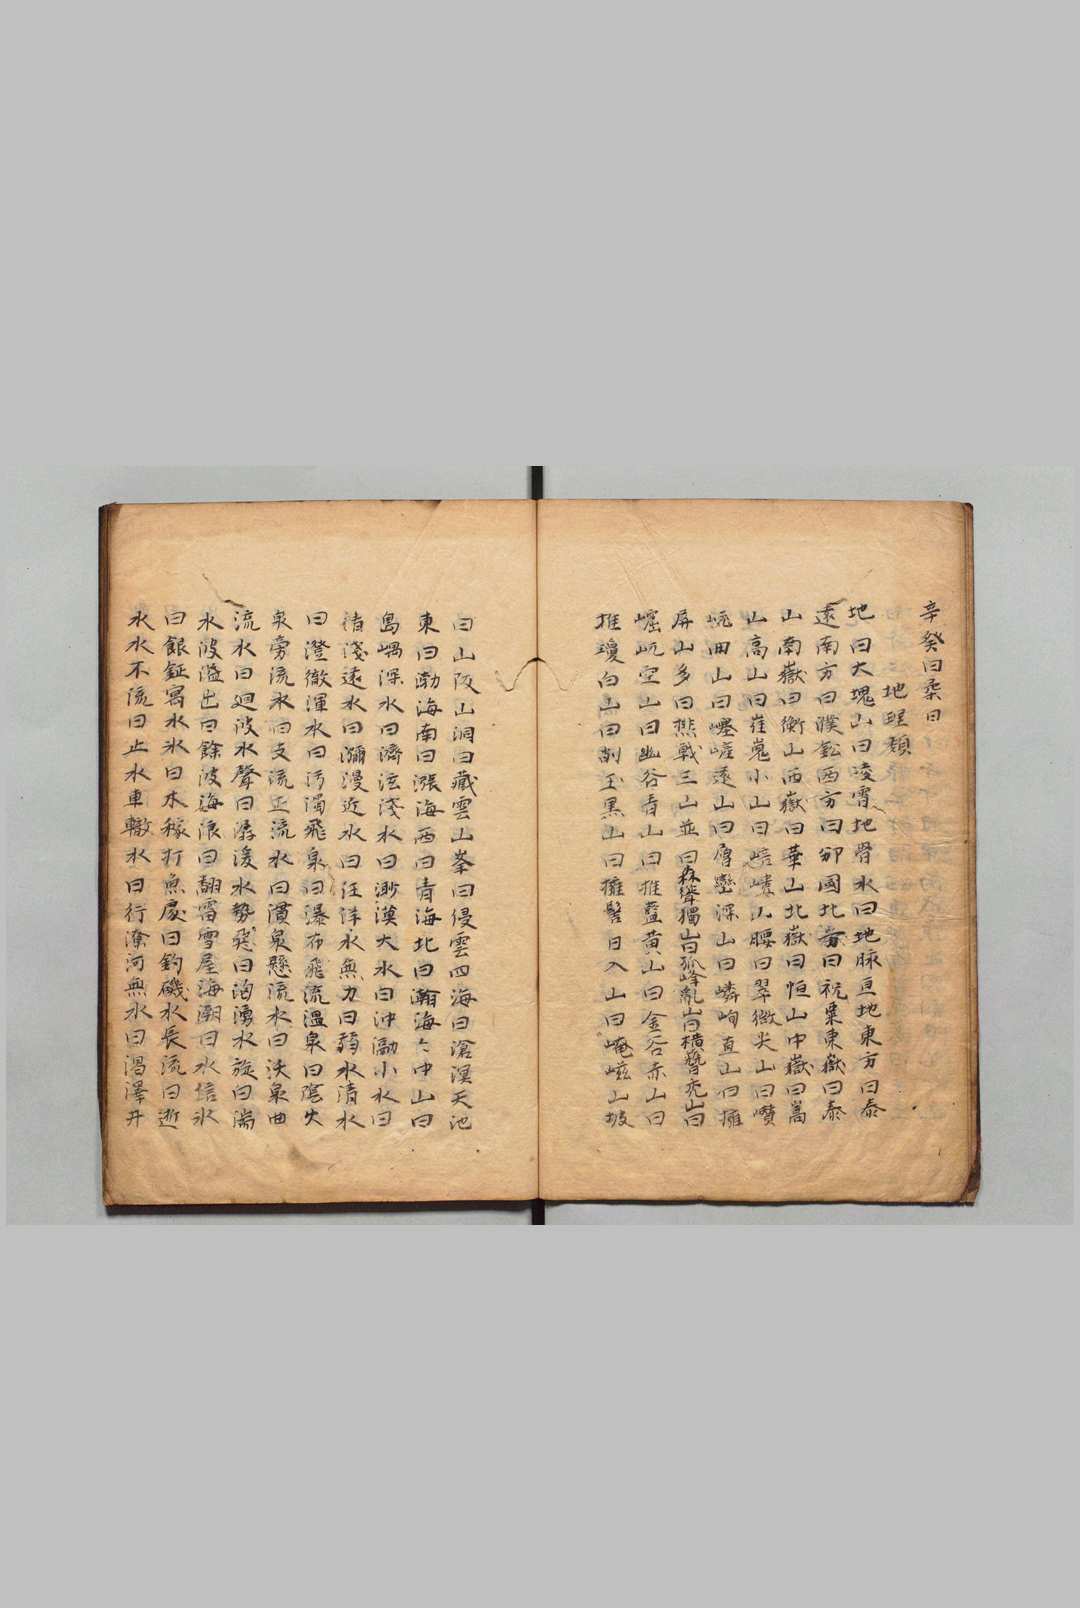 辛癸曰柔日
地理類
地曰大塊山曰凌霄地骨水曰地脉亘地東方曰泰
遠南方曰濮鈆西方曰邠國北方曰祝栗東嶽曰泰
山南嶽曰衡山西嶽曰華山北嶽曰恒山中嶽曰嵩
山高山曰崔嵬小山曰嶙山腰曰翠微尖山曰巑
岏田山曰遠山曰層巒深山曰嶙峋直山曰擁
屏山多曰熊戟三山並曰森聳獨山曰孤峰亂山曰橫簪禿山曰
崛屼空山曰幽谷青山曰推藍黃山曰金谷赤山曰
推瓊白山曰削玉黑山曰擁髻日入山曰崦嵫山坡
曰山阪山洞曰藏雲山峯曰侵雲四海曰滄溟天池
東曰渤海南曰漲海西曰青海北曰瀚海海中山曰
島嶼深水曰濟泫淺水曰渺漠大水曰沖瀜小水曰
淸淺遠水曰瀰漫近水曰汪洋水無力曰弱水清水
曰澄徹渾水曰污濁飛泉曰瀑布飛流溫泉曰陰火
泉旁流水曰支流正流水曰濆泉懸流水曰沃泉曲
流水曰廻波水聲曰潺湲水勢飛曰洶湧水旋曰湍
水波溢出曰餘波海浪曰翻霜雪屋海潮曰水信氷
曰銀鉦寫水氷曰木稼打魚處曰釣磯水長流曰逝
水水不流曰止水車轍水曰行潦河無水曰涸澤井